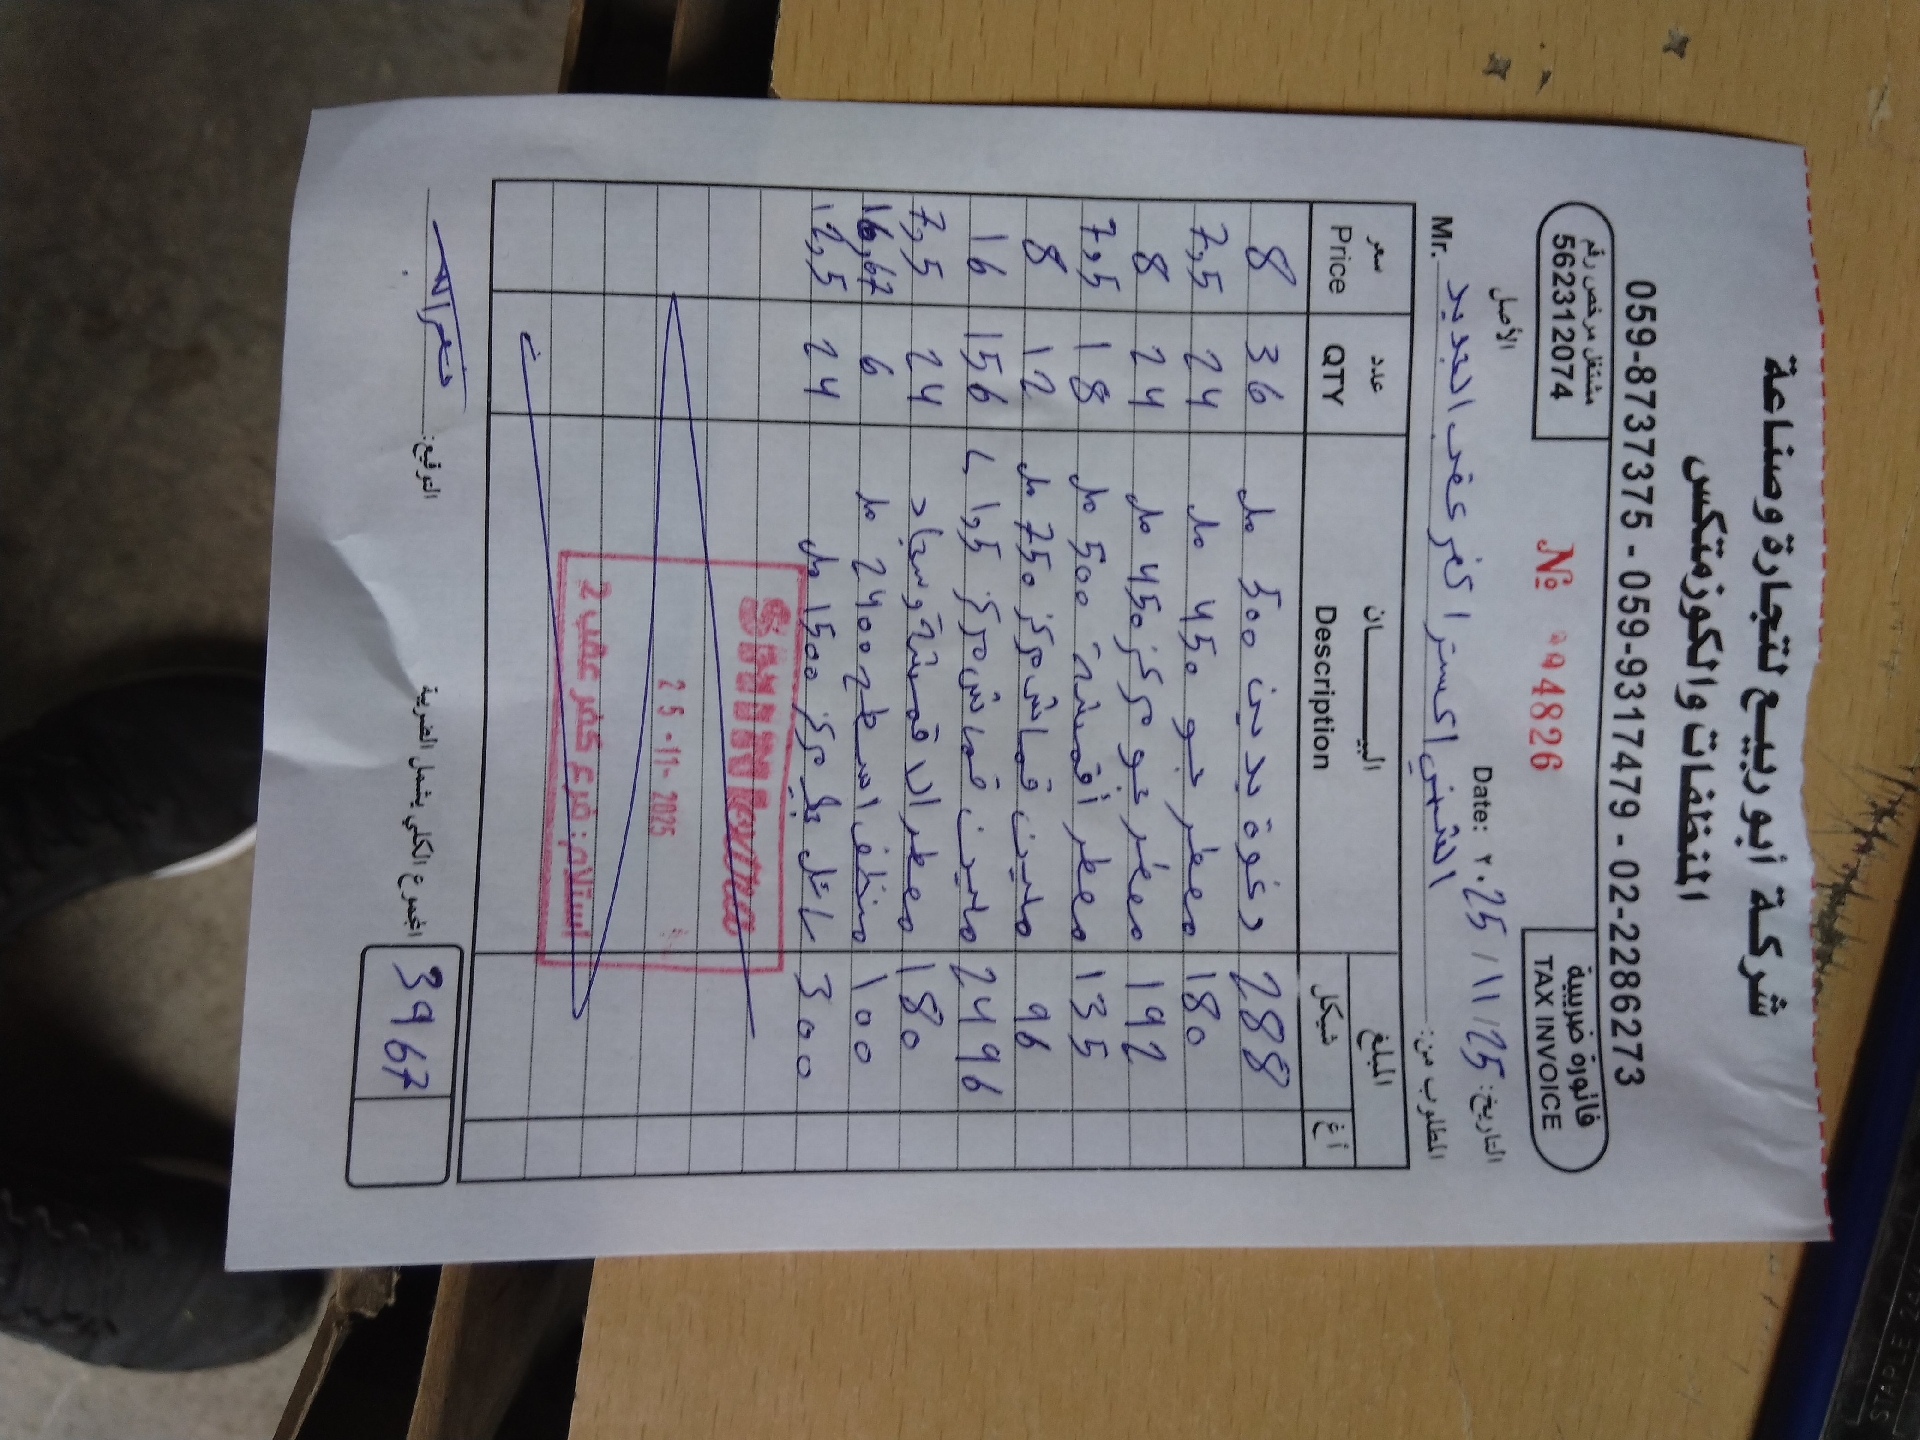 شركة أبو ربيع لتجارة وصناعة
المنظفات والكوزمتكس
059-8737375 - 059-9317479 - 02-2286273
مشتغل مرخص رقم
562312074
فاتورة ضريبية
TAX INVOICE
№ 94826
الأصل
Date: ٢٠25/11/25 :التاريخ
Mr. الشيني اكسترا كفر عقب الجديد المطلوب من:
سعر Price عدد QTY البيـــــان Description المبلغ شيكل أغ
8 36 رغوة يدين 500 مل 288
7,5 24 معطر جو 450 مل 180
8 24 معطر جو مركز 450 مل 192
7,5 18 معطر أقمشة 500 مل 135
8 12 ملين قماش مركز 750 مل 96
16 156 ملين قماش مركز 1,5 ل 2496
7,5 24 معطر الاقمشة وسجاد 180
16,67 6 منظف اسطح 2400 مل 100
12,5 24 سائل جلي مركز 1500 مل 300
25-11-2025
استلام: فرع كفر عقب 2
المجموع الكلي يشمل الضريبة 3967
التوقيع: